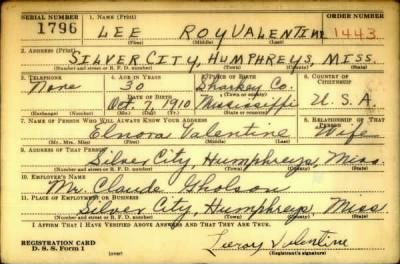 SERIAL NUMBER 1. NAME (Print) ORDER NUMBER
1796 LEE ROY VALENTINE 1443
(First) (Middle) (Last)
2. ADDRESS (Print)
SILVER CITY, HUMPHREYS, MISS.
(Number and street or R. F. D. number) (Town) (County) (State)
3. TELEPHONE 4. AGE IN YEARS 5. PLACE OF BIRTH 6. COUNTRY OF CITIZENSHIP
None 30 Sharkey Co.
DATE OF BIRTH (Town or county)
Oct. 7, 1910 Mississippi U.S.A.
(Exchange) (Number) (Mo.) (Day) (Yr.) (State or country)
7. NAME OF PERSON WHO WILL ALWAYS KNOW YOUR ADDRESS 8. RELATIONSHIP OF THAT PERSON
Elnora Valentine Wife
(Mr., Mrs., Miss) (First) (Middle) (Last)
9. ADDRESS OF THAT PERSON
Silver City, Humphreys, Miss.
(Number and street or R. F. D. number) (Town) (County) (State)
10. EMPLOYER'S NAME
Mr. Claude Gholson
11. PLACE OF EMPLOYMENT OR BUSINESS
Silver City, Humphreys Miss
(Number and street or R. F. D. number) (Town) (County) (State)
I AFFIRM THAT I HAVE VERIFIED ABOVE ANSWERS AND THAT THEY ARE TRUE.
REGISTRATION CARD
D. S. S. Form 1
Leeroy Valentine
(Registrant's signature)